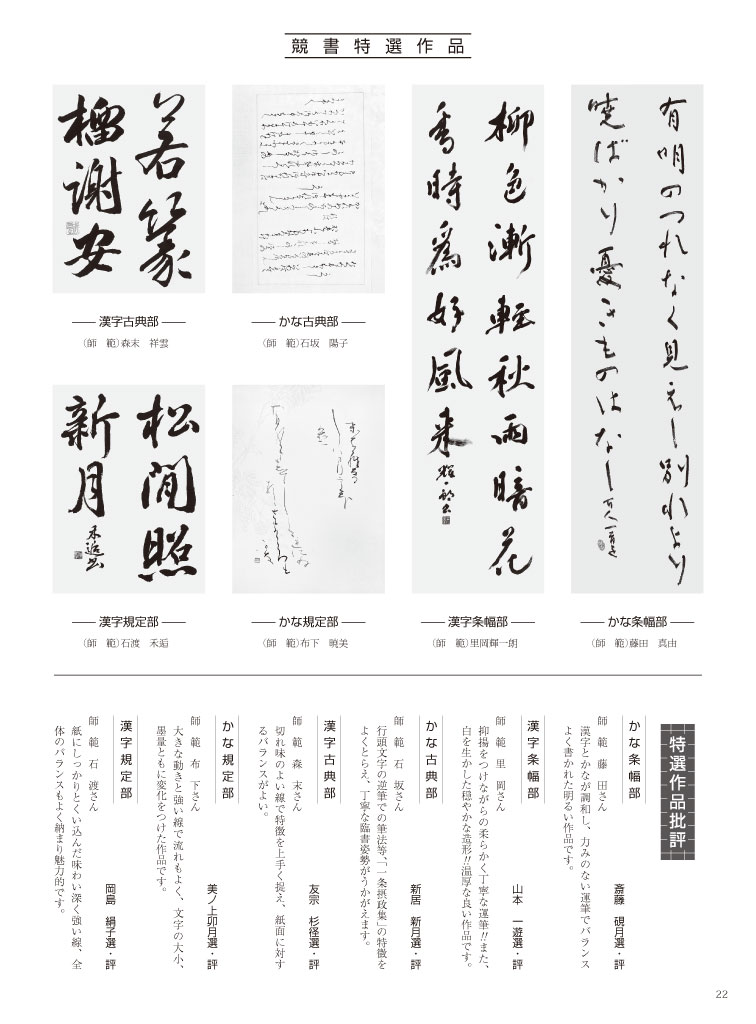 競書特選作品
有明のつれなく見えし別れより
暁ばかり憂きものはなし
かな条幅部
（師　範）藤田　真由
柳色漸軽秋雨暗花
香時為好風来
漢字条幅部
（師　範）里岡輝一朗
かな古典部
（師　範）石坂　陽子
若篆
榴謝安
漢字古典部
（師　範）森末　祥雲
かな規定部
（師　範）布下　暁美
松間照
新月
漢字規定部
（師　範）石渡　禾逅
特選作品批評
かな条幅部
斎藤　硯月選・評
師　範　藤　田さん
漢字とかなが調和し、力みのない運筆でバランス
よく書かれた明るい作品です。
漢字条幅部
山本　一遊選・評
師　範　里　岡さん
抑揚をつけながらの柔らかく丁寧な運筆!!また、
白を生かした穏やかな造形!!温厚な良い作品です。
かな古典部
新居　新月選・評
師　範　石　坂さん
行頭文字の逆筆での筆法等、「一条摂政集」の特徴を
よくとらえ、丁寧な臨書姿勢がうかがえます。
漢字古典部
友宗　杉径選・評
師　範　森　末さん
切れ味のよい線で特徴を上手く捉え、紙面に対す
るバランスがよい。
かな規定部
美ノ上卯月選・評
師　範　布　下さん
大きな動きと強い線で流れもよく、文字の大小、
墨量ともに変化をつけた作品です。
漢字規定部
岡島　絹子選・評
師　範　石　渡さん
紙にしっかりとくい込んだ味わい深く強い線、全
体のバランスもよく納まり魅力的です。
22